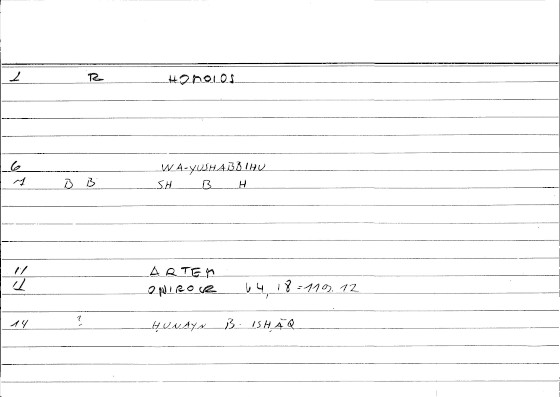 1 R HOMOIOS
6 WA-YUSHABBIHU
7 B B SH B H
11 ARTEM
12 ONIROCR 64, 18 = 119, 12
14 ? ḤUNAYN B. ISḤĀQ